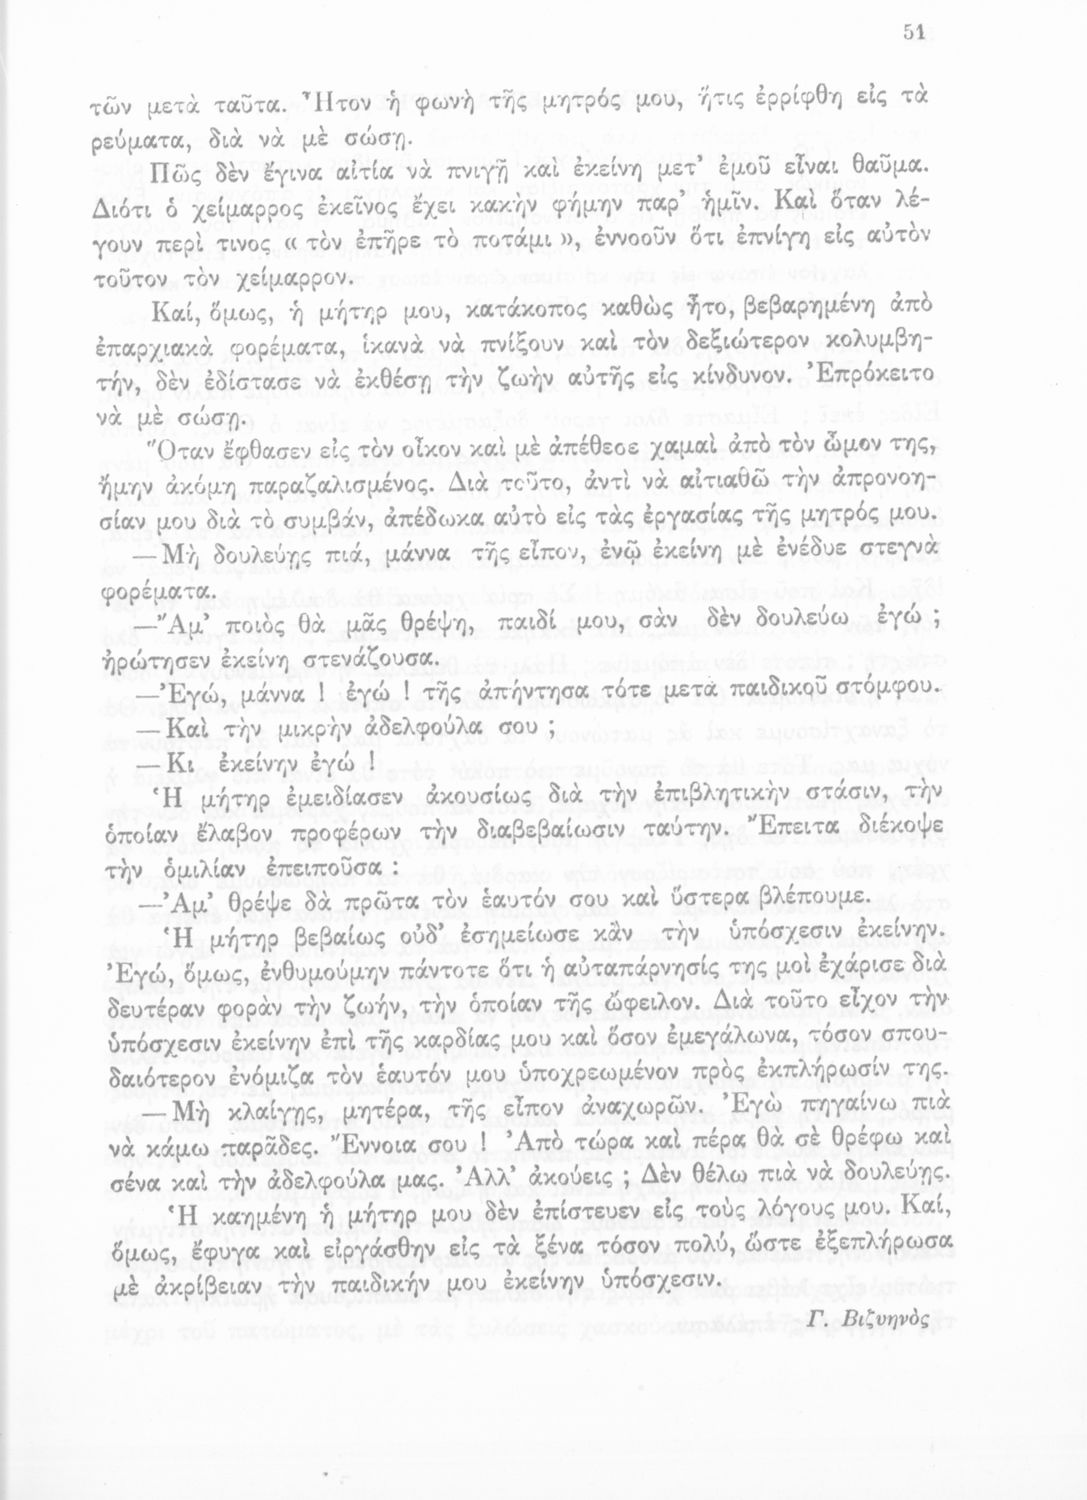 51
τῶν μετὰ ταῦτα. Ἦτον ἡ φωνὴ τῆς μητρός μου, ἥτις ἐρρίφθη εἰς τὰ
ρεύματα, διὰ νὰ μὲ σώσῃ.
Πῶς δὲν ἔγινα αἰτία νὰ πνιγῇ καὶ ἐκείνη μετ’ ἐμοῦ εἶναι θαῦμα.
Διότι ὁ χείμαρρος ἐκεῖνος ἔχει κακὴν φήμην παρ’ ἡμῖν. Καὶ ὅταν λέ-
γουν περὶ τινος « τὸν ἐπῆρε τὸ ποτάμι », ἐννοοῦν ὅτι ἐπνίγη εἰς αὐτὸν
τοῦτον τὸν χείμαρρον.
Καί, ὅμως, ἡ μήτηρ μου, κατάκοπος καθὼς ἦτο, βεβαρημένη ἀπὸ
ἐπαρχιακὰ φορέματα, ἱκανὰ νὰ πνίξουν καὶ τὸν δεξιώτερον κολυμβη-
τήν, δὲν ἐδίστασε νὰ ἐκθέσῃ τὴν ζωὴν αὐτῆς εἰς κίνδυνον. Ἐπρόκειτο
νὰ μὲ σώσῃ.
Ὅταν ἔφθασεν εἰς τὸν οἶκον καὶ μὲ ἀπέθεσε χαμαὶ ἀπὸ τὸν ὦμον της,
ἤμην ἀκόμη παραζαλισμένος. Διὰ τοῦτο, ἀντὶ νὰ αἰτιαθῶ τὴν ἀπρονοη-
σίαν μου διὰ τὸ συμβάν, ἀπέδωκα αὐτὸ εἰς τὰς ἐργασίας τῆς μητρός μου.
— Μὴ δουλεύῃς πιά, μάννα τῆς εἶπον, ἐνῷ ἐκείνη μὲ ἐνέδυε στεγνὰ
φορέματα.
— Ἄμ’ ποιὸς θὰ μᾶς θρέψη, παιδί μου, σὰν δὲν δουλεύω ἐγώ ;
ἠρώτησεν ἐκείνη στενάζουσα.
— Ἐγώ, μάννα ! ἐγώ ! τῆς ἀπήντησα τότε μετὰ παιδικοῦ στόμφου.
— Καὶ τὴν μικρὴν ἀδελφούλα σου ;
— Κι ἐκείνην ἐγώ !
Ἡ μήτηρ ἐμειδίασεν ἀκουσίως διὰ τὴν ἐπιβλητικὴν στάσιν, τὴν
ὁποίαν ἔλαβον προφέρων τὴν διαβεβαίωσιν ταύτην. Ἔπειτα διέκοψε
τὴν ὁμιλίαν ἐπειποῦσα :
— Ἀμ’ θρέψε δὰ πρῶτα τὸν ἑαυτόν σου καὶ ὕστερα βλέπουμε.
Ἡ μήτηρ βεβαίως οὐδ’ ἐσημείωσε κἂν τὴν ὑπόσχεσιν ἐκείνην.
Ἐγώ, ὅμως, ἐνθυμούμην πάντοτε ὅτι ἡ αὐταπάρνησίς της μοὶ ἐχάρισε διὰ
δευτέραν φορὰν τὴν ζωήν, τὴν ὁποίαν τῆς ὤφειλον. Διὰ τοῦτο εἶχον τὴν
ὑπόσχεσιν ἐκείνην ἐπὶ τῆς καρδίας μου καὶ ὅσον ἐμεγάλωνα, τόσον σπου-
δαιότερον ἐνόμιζα τὸν ἑαυτόν μου ὑποχρεωμένον πρὸς ἐκπλήρωσίν της.
— Μὴ κλαίγῃς, μητέρα, τῆς εἶπον ἀναχωρῶν. Ἐγὼ πηγαίνω πιὰ
νὰ κάμω παρᾶδες. Ἔννοια σου ! Ἀπὸ τώρα καὶ πέρα θὰ σὲ θρέφω καὶ
σένα καὶ τὴν ἀδελφούλα μας. Ἀλλ’ ἀκούεις ; Δὲν θέλω πιὰ νὰ δουλεύῃς.
Ἡ καημένη ἡ μήτηρ μου δὲν ἐπίστευεν εἰς τοὺς λόγους μου. Καί,
ὅμως, ἔφυγα καὶ εἰργάσθην εἰς τὰ ξένα τόσον πολύ, ὥστε ἐξεπλήρωσα
μὲ ἀκρίβειαν τὴν παιδικήν μου ἐκείνην ὑπόσχεσιν.
Γ. Βιζυηνὸς